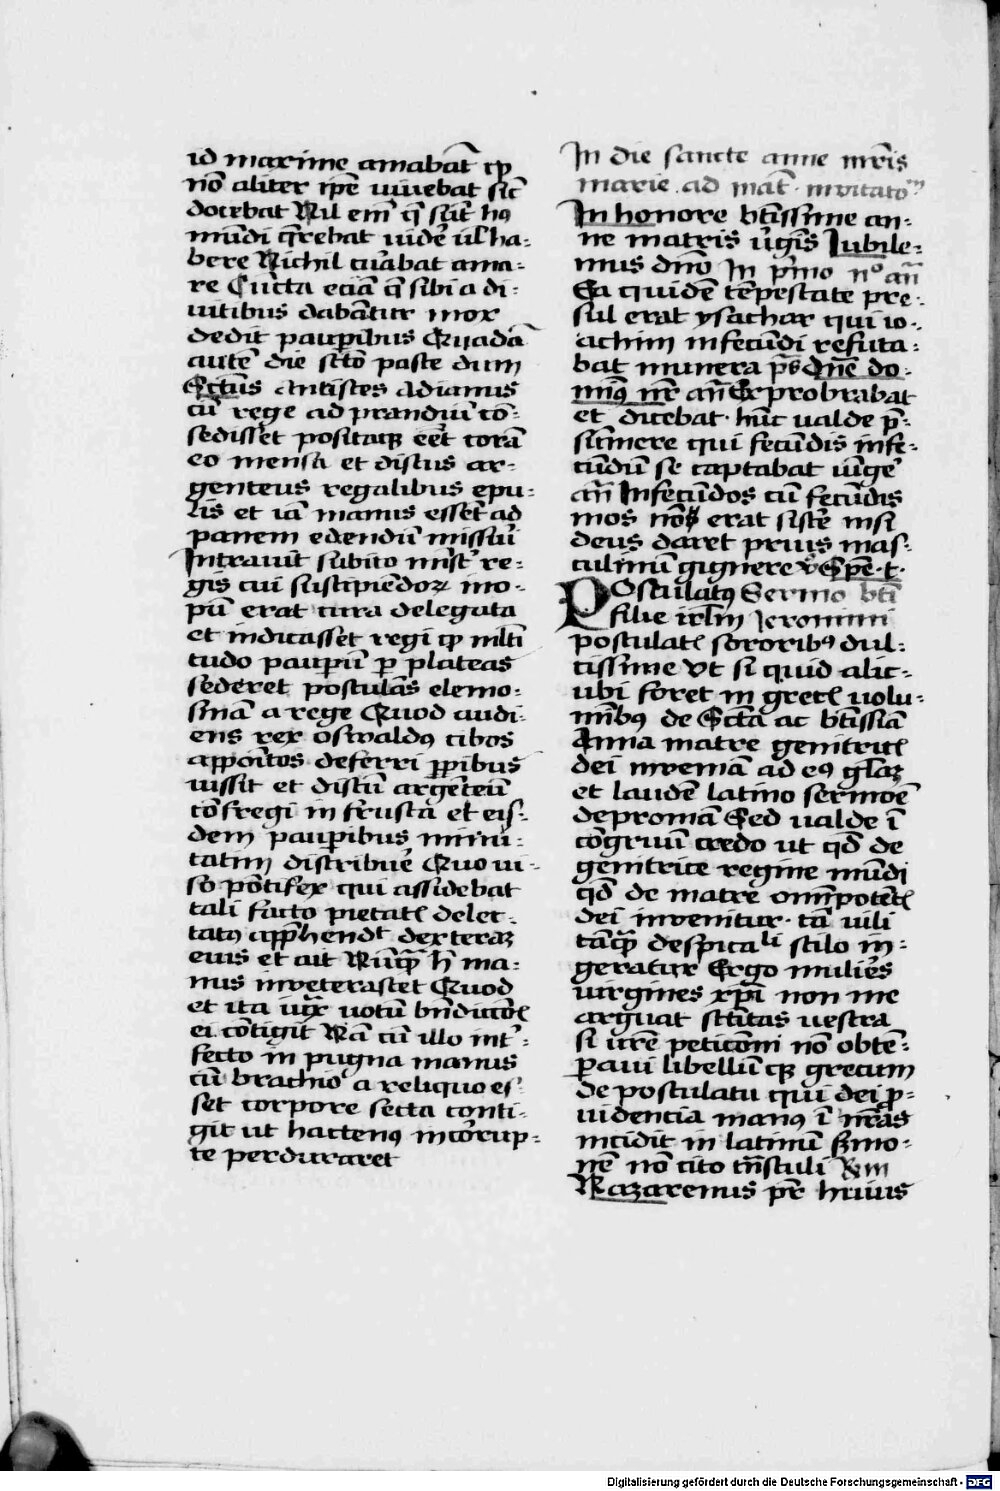 id maxime amabat̄ qꝫ
nō aliter ip̄e viuebat sic̄
docebat Nil em̄ q̄ sūt hꝰ
mūdi q̄rebat videˀ vl̄ ha-
bere Nichil cuˀabat ama-
re Cūcta eciā q̄ sibi a di-
uitibus dabāntur mox
dedit paup̲ibus Quadā
autē die scto paste dum
Sctūs Antistes Adianus
cū rege ad prandiū cō-
sedisset positaqꝫ eēt corā
eo mensa et discus ar-
genteus regalibus epu-
lis et iā manus essēt ad
panem edendū missuˀi
Intrauit subito mīst̄ re-
gis cui suscipiēdoꝝ ino-
pū erat cura delegata
et indicasset regi qꝫ ml̄ti
tudo paup̲ū p̲ plateas
sederet postulās elemo-
sinā a rege Quod audi-
ens rex oswaldꝰ cibos
appōitos deferri pp̲ibus
iussit et discū argēteū
cōfregi in frusta et eis-
dem paup̲ibus minu-
tatim distribueˀ Quo vi-
so pōtifex qui assidebat
tali facto pietatꝭ delec-
tatꝰ app̄hendt dexteraꝫ
eius et ait Nūq̄ꝫ h̄ ma-
nus inveterascet Quod
et ita iux̄ votū bn̄dictōꝭ
ei cōtigit Nā cū illo intˀ-
fecto in pugna manus
cū brachio a reliquo es-
set corpore secta conti-
git ut hactenꝰ incōrup-
te perduraret
In die sancte anne mr̄is
marie . ad mat̄ . invitatoꝝ
In honore bt̄issime an-
ne matris v̄gīs Iubile-
mus dn̄o In pˀmo nº an̄
Ea quidē tēpestate pre-
sul erat ysachar qui io-
achim infecūdi refuta-
bat munera p̄s Dn̄e do-
minꝰ nr̄ an̄ Exprobrabat
et dicebat . hūc valde p̄-
sūmere qui fecūdis infe-
cūdū se captabat iūgeˀ
an̄ Infecūdos cū fecūdis
mos nō erat sistēˀ nisi
deus daret prius mas-
culinū gignere v̄ Spē . t .
POstulatꝰ Sermo bt̄i
filie irl̄m Jeronimi
postulatꝭ sororibꝰ dul-
cissime Vt si quid alic-
ubi foret in grecꝭ volu-
mībꝰ de Sctā ac bt̄issiā
Anna matre genitricꝭ
dei inveniā ad eꝰ gl̄aꝫ
et laudē latino sermoē
depromā Sed valde ī
cōgruū credo ut qd̄ de
genitrice regine mūdi
qd̄ de matre omīpotētꝭ
dei invenitur . tā vili
tāq̄ꝫ despicali stilo in-
geratur Ergo mulieˀs
virgines xp̄i non me
arguat sctītas vestra
si vr̄e peticōni nō obtē-
p̲aui libellūqꝫ grecum
de postulatu qui dei p̲-
videncia manꝰ ī nr̄as
incidit in latinū s̄mo-
nē nō cito trāstuli
Nazarenus pr̄ huius
Digitalisierung gefördert durch die Deutsche Forschungsgemeinschaft - DFG